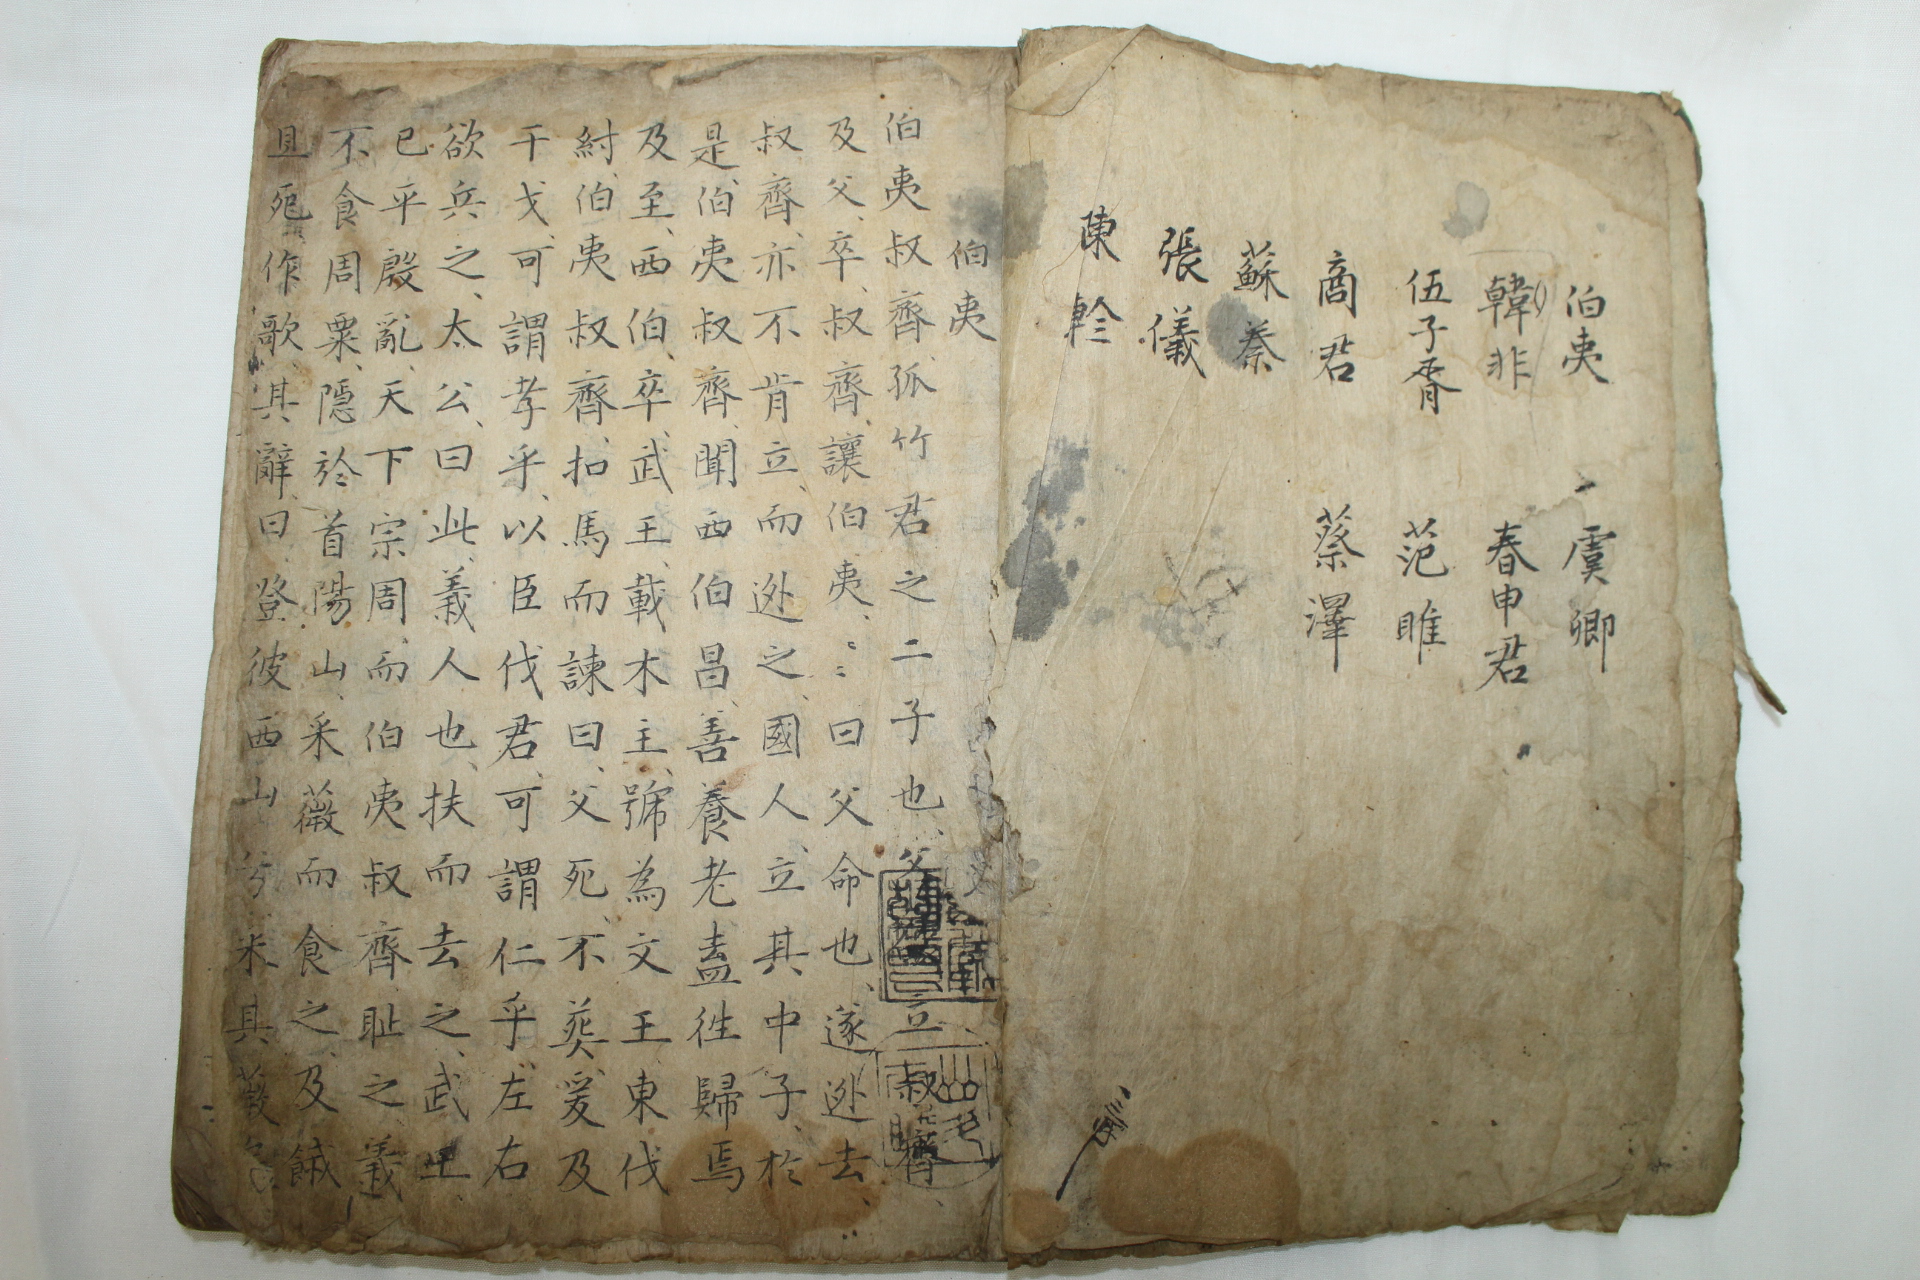 伯夷　虞卿
韓非　春申君
伍子胥　范睢
商君　蔡澤
蘇秦
張儀
陳軫
伯夷
伯夷叔齊孤竹君之二子也父　立叔齊
及父卒叔齊讓伯夷〻〻曰父命也遂逊去
叔齊亦不肯立而逊之國人立其中子於
是伯夷叔齊聞西伯昌善養老盍徃歸焉
及至西伯卒武王載木主號為文王東伐
紂伯夷叔齊扣馬而諫曰父死不葬爰及
干戈可謂孝乎以臣伐君可謂仁乎左右
欲兵之太公曰此義人也扶而去之武王
已平殷亂天下宗周而伯夷叔齊耻之義
不食周粟隠於首陽山采薇而食之及餓
且死作歌其辭曰登彼西山兮采其薇